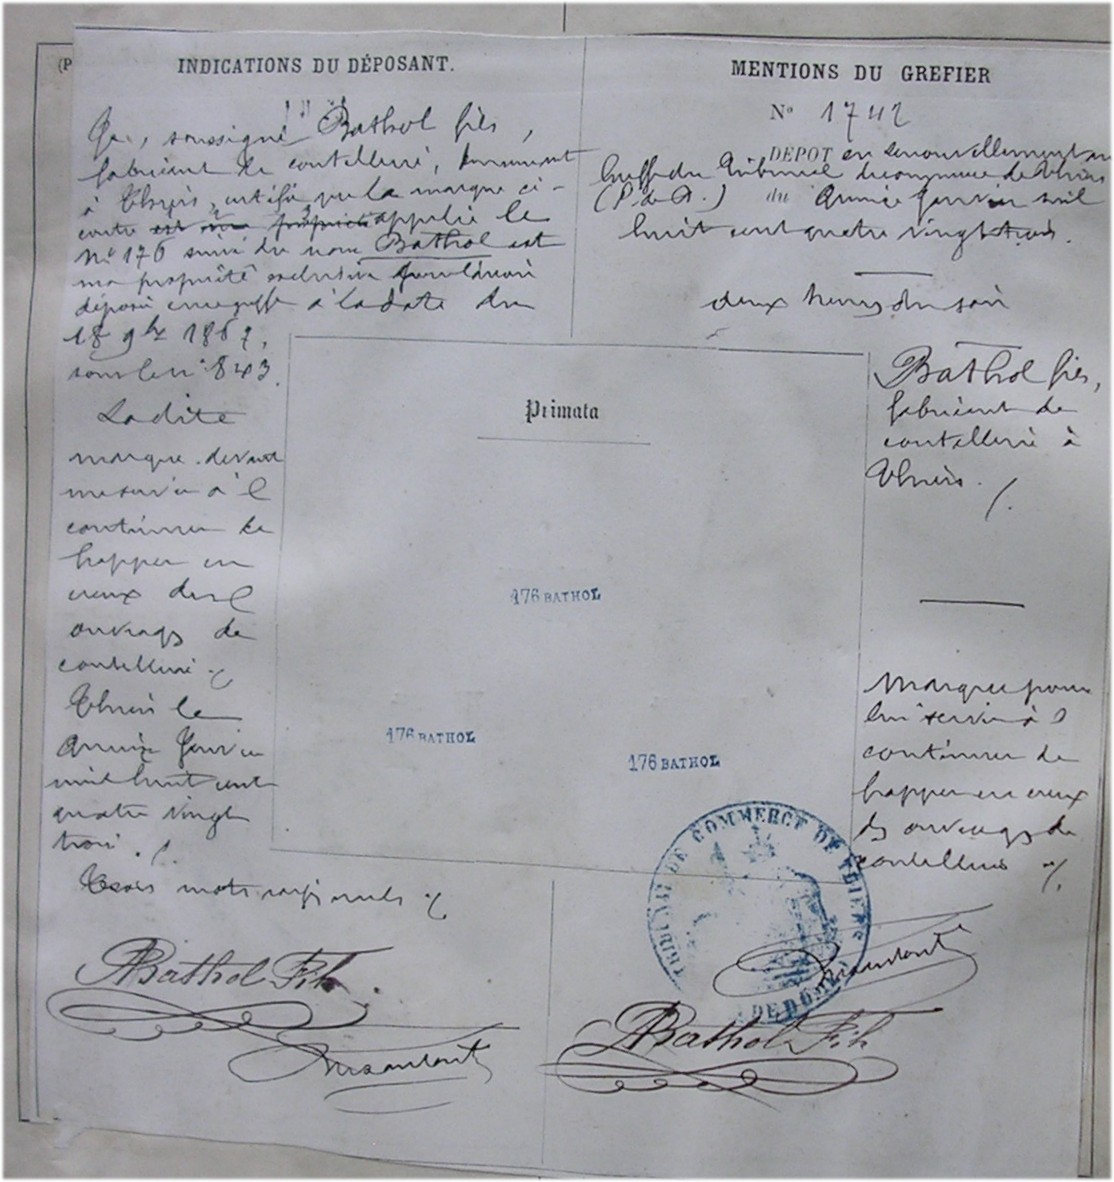 (P
INDICATIONS DU DÉPOSANT.
Je, soussigné Bathol fils,
fabricant de coutellerie, demeurant
à Thiers, certifie que la marque ci-
contre est ma propriété appelée le
N° 176 suivi du nom Bathol est
ma propriété exclusive
déposée au greffe à la date du
18 9bre 1867,
sous le n° 843.
La dite
marque devant
me servir à
continuer de
frapper en
creux des
ouvrages de
coutellerie
Thiers le
quinze Janvier
mil huit cent
quatre vingt
trois.
Trois mots rayés nuls
ABathol Fils
MENTIONS DU GREFIER
N° 1742
DÉPOT en renouvellement au
Greffe du Tribunal de commerce de Thiers
(P. de D.) du quinze Janvier mil
huit cent quatre vingt trois.
deux heures du soir
Primata
Bathol fils,
fabricant de
coutellerie à
Thiers.
176 BATHOL
176 BATHOL
176 BATHOL
Marque pour
lui servir à
continuer de
frapper en creux
des ouvrages de
coutellerie
TRIBUNAL DE COMMERCE DE THIERS
DE DÔME
ABathol Fils